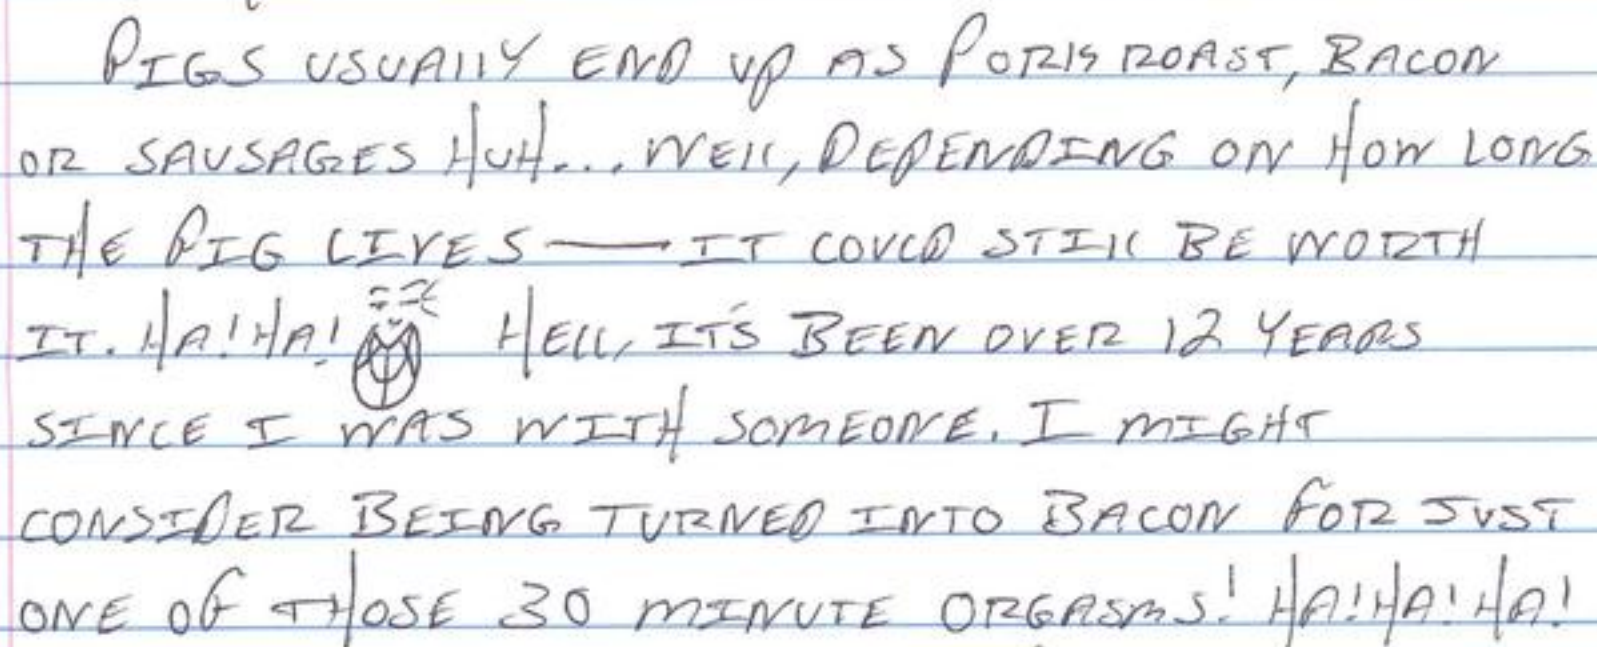 PIGS USUALLY END UP AS PORK ROAST, BACON
OR SAUSAGES HUH... WELL, DEPENDING ON HOW LONG
THE PIG LIVES — IT COULD STILL BE WORTH
IT. HA! HA! HELL, IT'S BEEN OVER 12 YEARS
SINCE I WAS WITH SOMEONE. I MIGHT
CONSIDER BEING TURNED INTO BACON FOR JUST
ONE OF THOSE 30 MINUTE ORGASMS! HA! HA! HA!